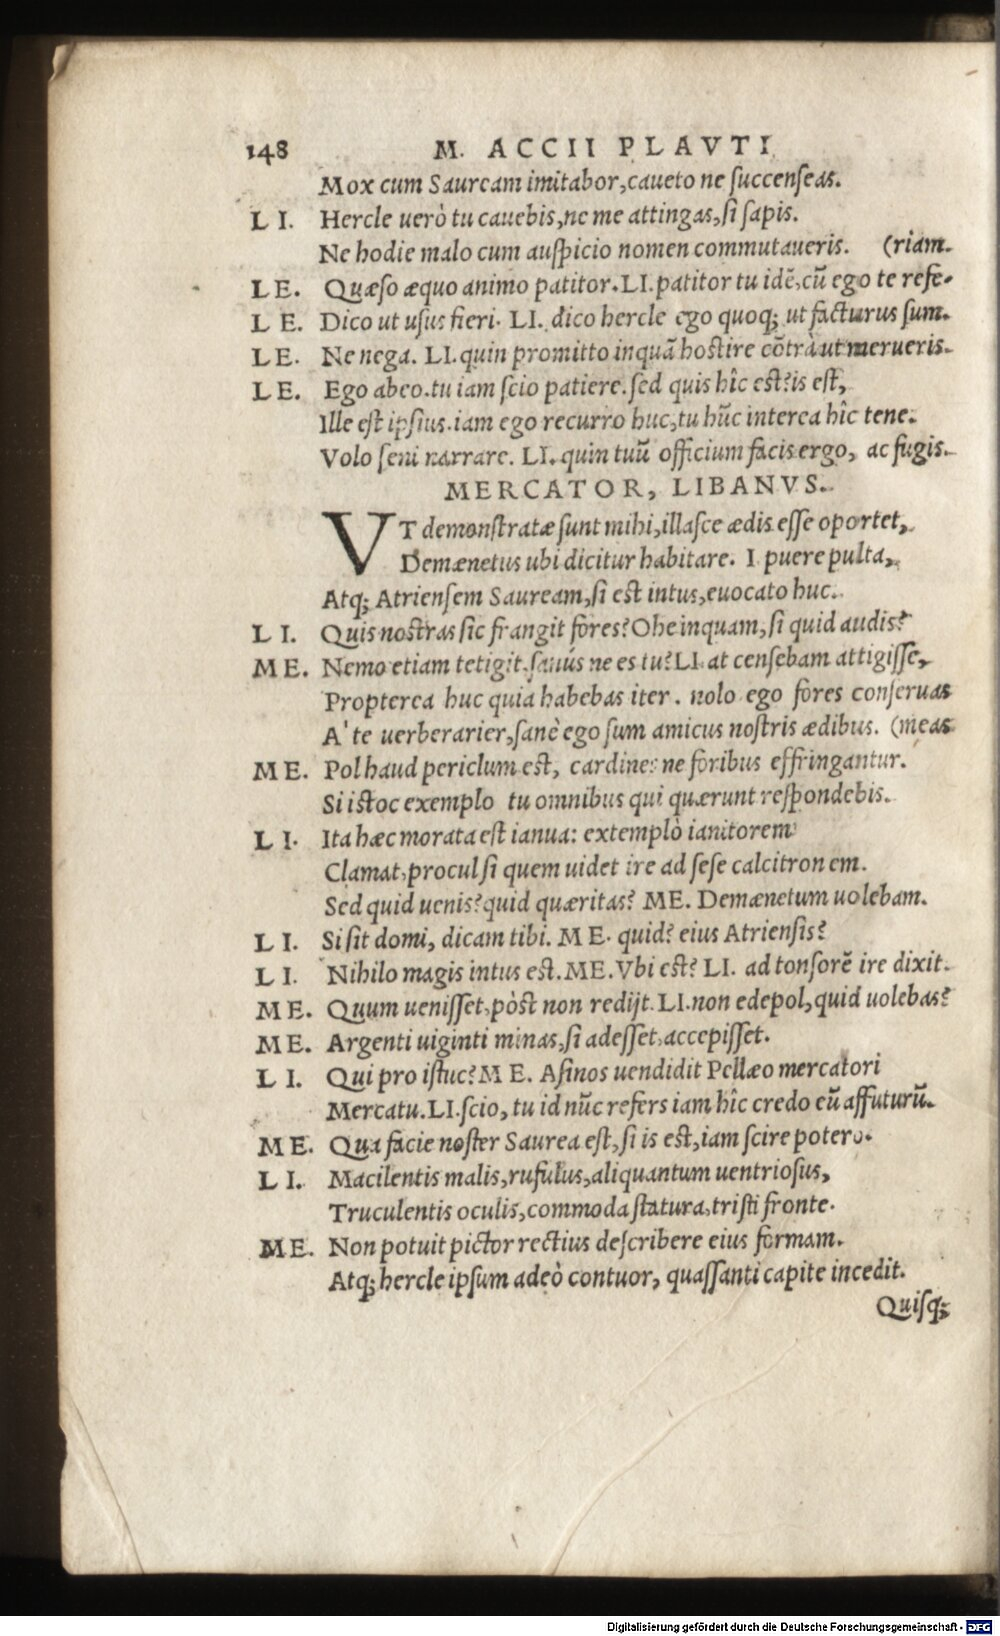 148 M. ACCII PLAVTI
Mox cum Sauream imitabor, caueto ne succenseas.
LI. Hercle uerò tu cauebis, ne me attingas, si sapis.
Ne hodie malo cum auspicio nomen commutaueris. (riam.
LE. Quæso æquo animo patitor. LI. patitor tu idẽ, cũ ego te refe-
LE. Dico ut usus fieri. LI. dico hercle ego quoq; ut facturus sum.
LE. Ne nega. LI. quin promitto inquã hostire cõtrà ut merueris.
LE. Ego abeo. tu iam scio patiere. sed quis hîc est? is est,
Ille est ipsius. iam ego recurro huc, tu hũc interea hîc tene.
Volo seni narrare. LI. quin tuũ officium facis ergo, ac fugis.
MERCATOR, LIBANVS.
VT demonstratæ sunt mihi, illasce ædis esse oportet,
Demænetus ubi dicitur habitare. I puere pulta,
Atq; Atriensem Sauream, si est intus, euocato huc.
LI. Quis nostras sic frangit fores? Ohe inquam, si quid audis?
ME. Nemo etiam tetigit. sanús ne es tu? LI. at censebam attigisse,
Propterea huc quia habebas iter. nolo ego fores conseruas
A' te uerberarier, sanè ego sum amicus nostris ædibus. (meas
ME. Pol haud periclum est, cardines ne foribus effringantur.
Si istoc exemplo tu omnibus qui quærunt respondebis.
LI. Ita hæc morata est ianua: extemplò ianitorem
Clamat, procul si quem uidet ire ad sese calcitronem.
Sed quid uenis? quid quæritas? ME. Demænetum uolebam.
LI. Si sit domi, dicam tibi. ME. quid? eius Atriensis?
LI. Nihilo magis intus est. ME. Vbi est? LI. ad tonsorẽ ire dixit.
ME. Quum uenisset, pòst non redijt. LI. non edepol, quid uolebas?
ME. Argenti uiginti minas, si adesset, accepisset.
LI. Qui pro istuc? ME. Asinos uendidit Pellæo mercatori
Mercatu. LI. scio, tu id nũc refers iam hîc credo eũ affuturũ.
ME. Qua facie noster Saurea est, si is est, iam scire potero.
LI. Macilentis malis, rufulus, aliquantum uentriosus,
Truculentis oculis, commoda statura, tristi fronte.
ME. Non potuit pictor rectius describere eius formam.
Atq; hercle ipsum adeò contuor, quassanti capite incedit.
Quisq;
Digitalisierung gefördert durch die Deutsche Forschungsgemeinschaft - DFG